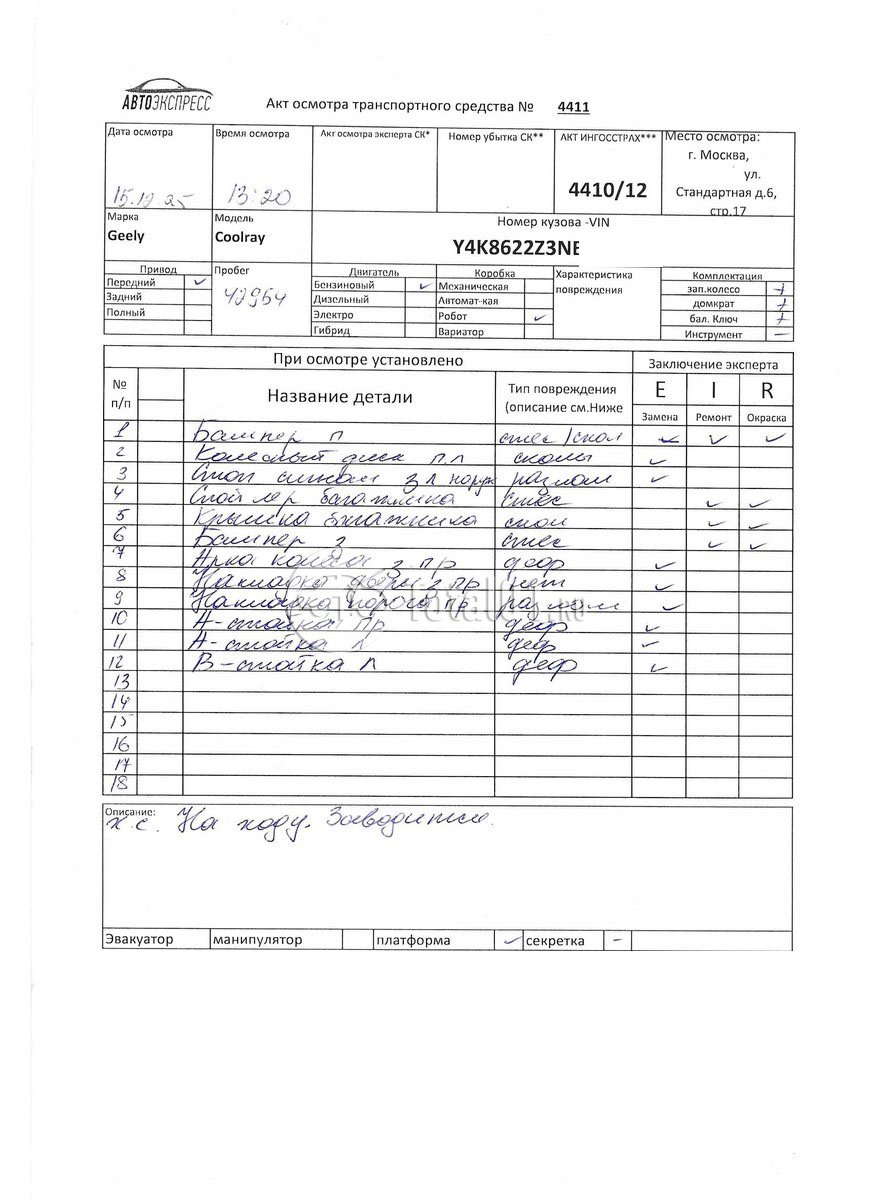 АВТОЭКСПРЕСС
Акт осмотра транспортного средства № 4411
Дата осмотра
Время осмотра
Акт осмотра эксперта СК*
Номер убытка СК**
АКТ ИНГОССТРАХ***
Место осмотра:
г. Москва,
ул.
Стандартная д.6,
стр.17
15.12.25
13:20
4410/12
Марка
Модель
Номер кузова -VIN
Geely
Coolray
Y4K8622Z3NE
Привод
Пробег
Двигатель
Коробка
Характеристика
повреждения
Комплектация
Передний ✓
Бензиновый ✓
Механическая
зап.колесо +
Задний
42954
Дизельный
Автомат-кая
домкрат +
Полный
Электро
Робот ✓
бал. Ключ +
Гибрид
Вариатор
Инструмент –
При осмотре установлено
Заключение эксперта
№
п/п
Название детали
Тип повреждения
(описание см.Ниже
E I R
Замена Ремонт Окраска
1 Бампер п стес/скол ✓ ✓ ✓
2 Колесный диск п.л сколы ✓
3 Стоп сигнал з л наруж разлом ✓
4 Спойлер багажника стес ✓ ✓
5 Крышка багажника скол ✓ ✓
6 Бампер з стес ✓ ✓
7 Арка колеса з.пр деф ✓
8 Накладка двери з пр нет ✓
9 Накладка порога пр разлом ✓
10 А-стойка пр деф ✓
11 А-стойка л деф ✓
12 В-стойка л деф ✓
13
14
15
16
17
18
Описание:
х.с. На ходу. Заводится.
Эвакуатор манипулятор платформа ✓ секретка –